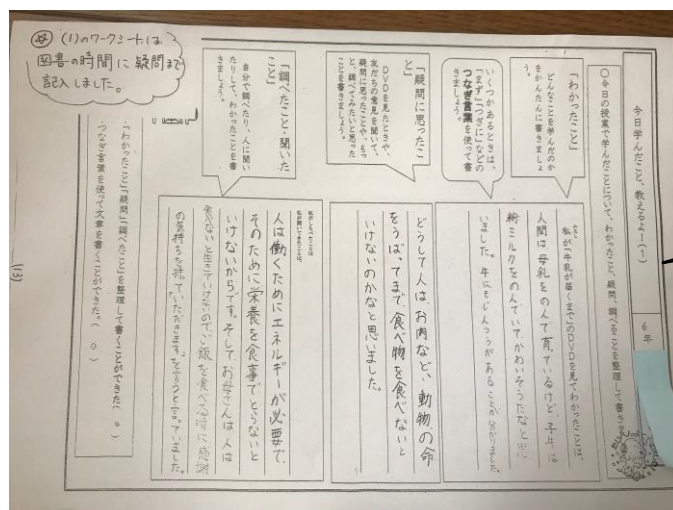 (1)のワークシートは
図書の時間に疑問まで
記入しました。
今日学んだこと、教えるよ!(1)
6年
〇今日の授業で学んだことについて、わかったこと、疑問、調べることを整理して書き
「わかったこと」
どんなことを学んだのか
をかんたんに書きましょ
う。
いくつかあるときは、
「まず」「つぎに」などの
つなぎ言葉を使って書
きましょう。
私が「牛乳が届くまで」のDVDを見てわかったことは、
人間は母乳をのんで育っているけど、子牛に
粉ミルクをのんでいて、かわいそうだなと思
いました。牛にもじんつうがあることが分かりました。
「疑問に思ったこ
と」
DVDを見たときや、
友だちの意見を聞いて、
疑問に思ったことや、もっ
と、調べてみたいと思った
ことを書きましょう。
どうして人は、お肉など、動物の命
をうばってまで、食べ物を食べないと
いけないのかなと思いました。
「調べたこと・聞いた
こと」
自分で調べたり、人に聞い
たりして、わかったことを書
きましょう。
私がしらべたことは
私が聞いてきたことは、
人は働くためにエネルギーが必要で、
そのために栄養を食事でとらないと
いけないからです。そして、お母さんは人は
食べないと生きていけないので、ご飯を食べる時に感謝
の気持ちを持って「いただきます。」を言うと言っていました。
・「わかったこと」「疑問」「調べたこと」を整理して書くことができた(〇)
・つなぎ言葉を使って文章を書くことができた。(〇)
(13)